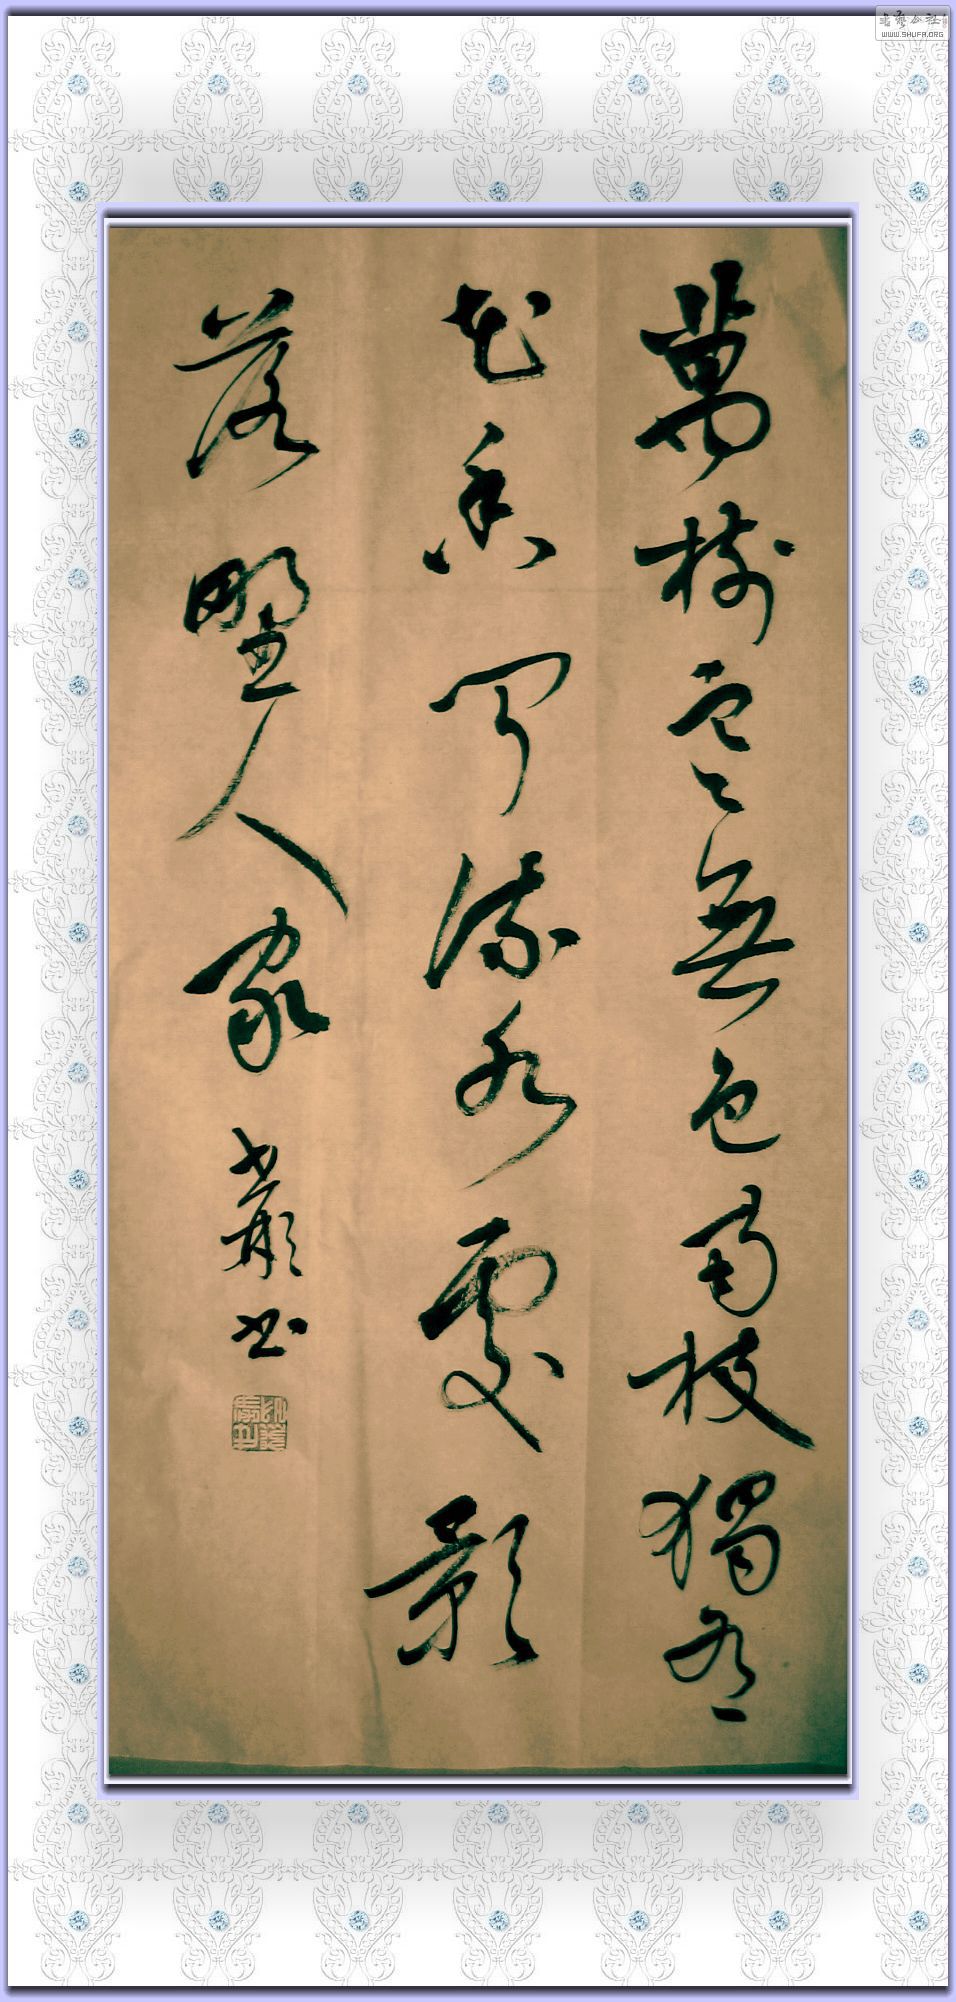 書藝公社
WWW.SHUFA.ORG
萬樹寒無色南枝獨有
花香聞流水處影
落野人家
书